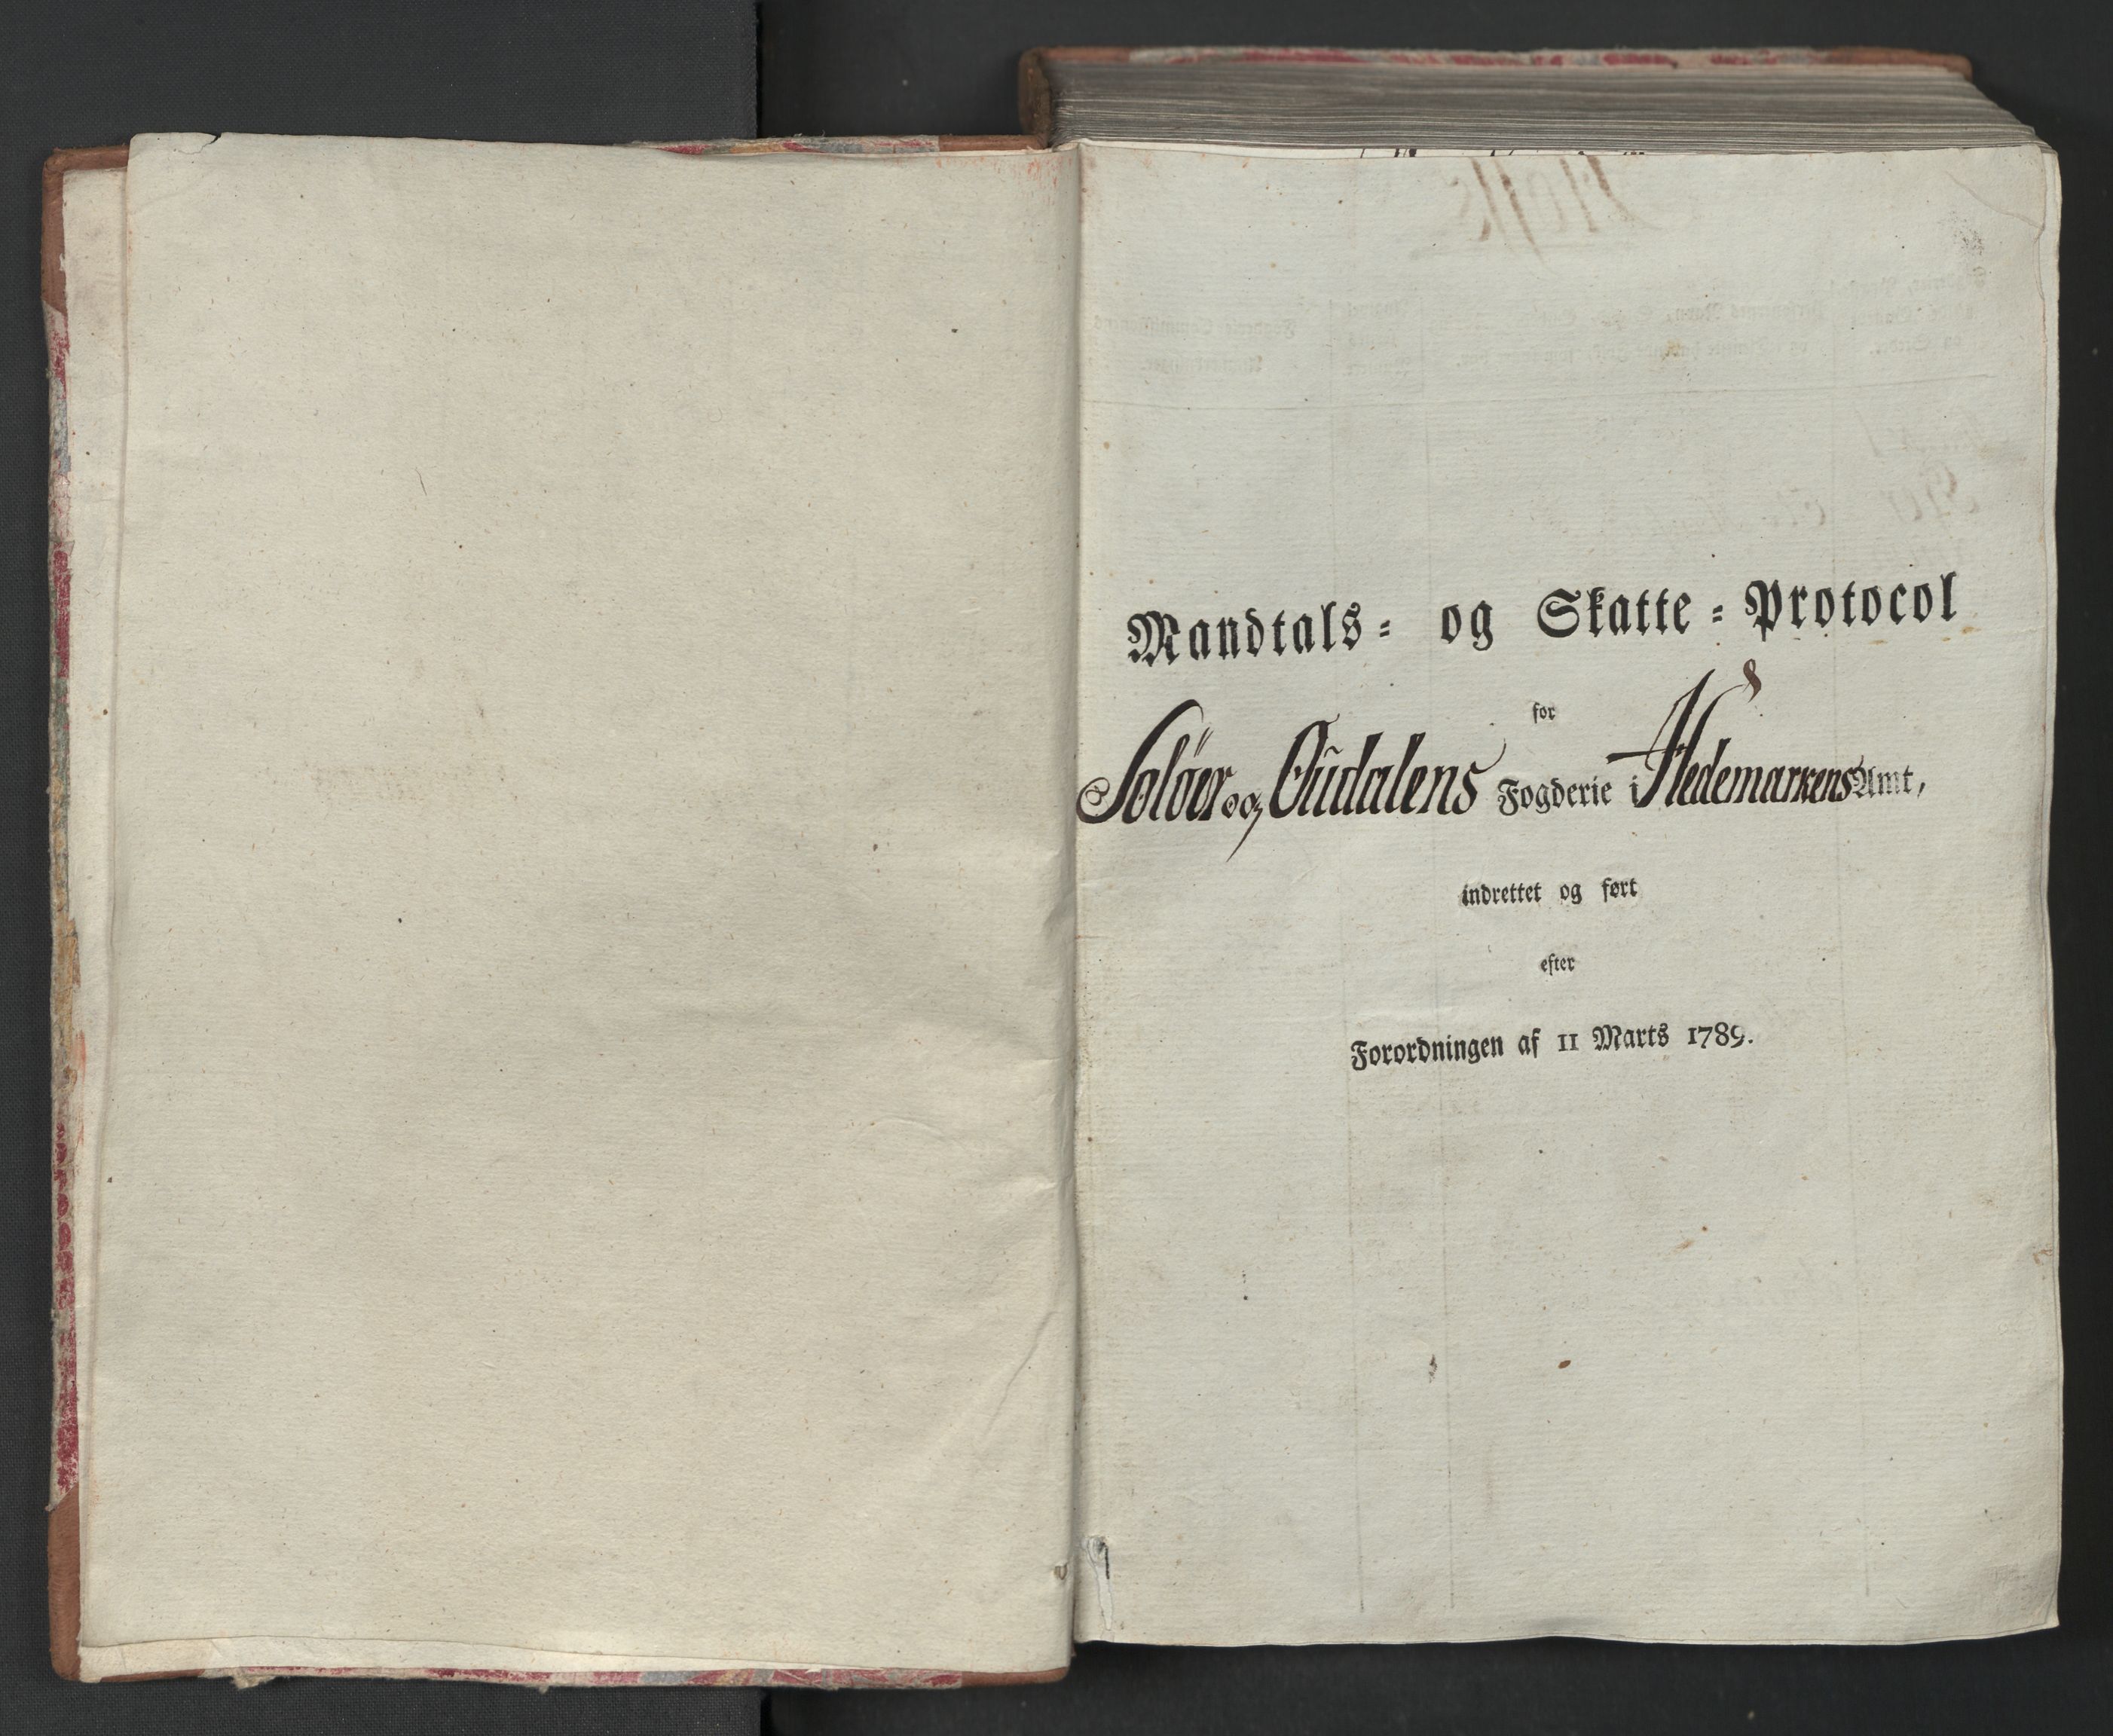 Mandtals= og Skatte=Protocol
for
Soløer og Oudalens Fogderie i Hedemarkens Amt,
indrettet og ført
efter
Forordningen af 11 Marts 1789.